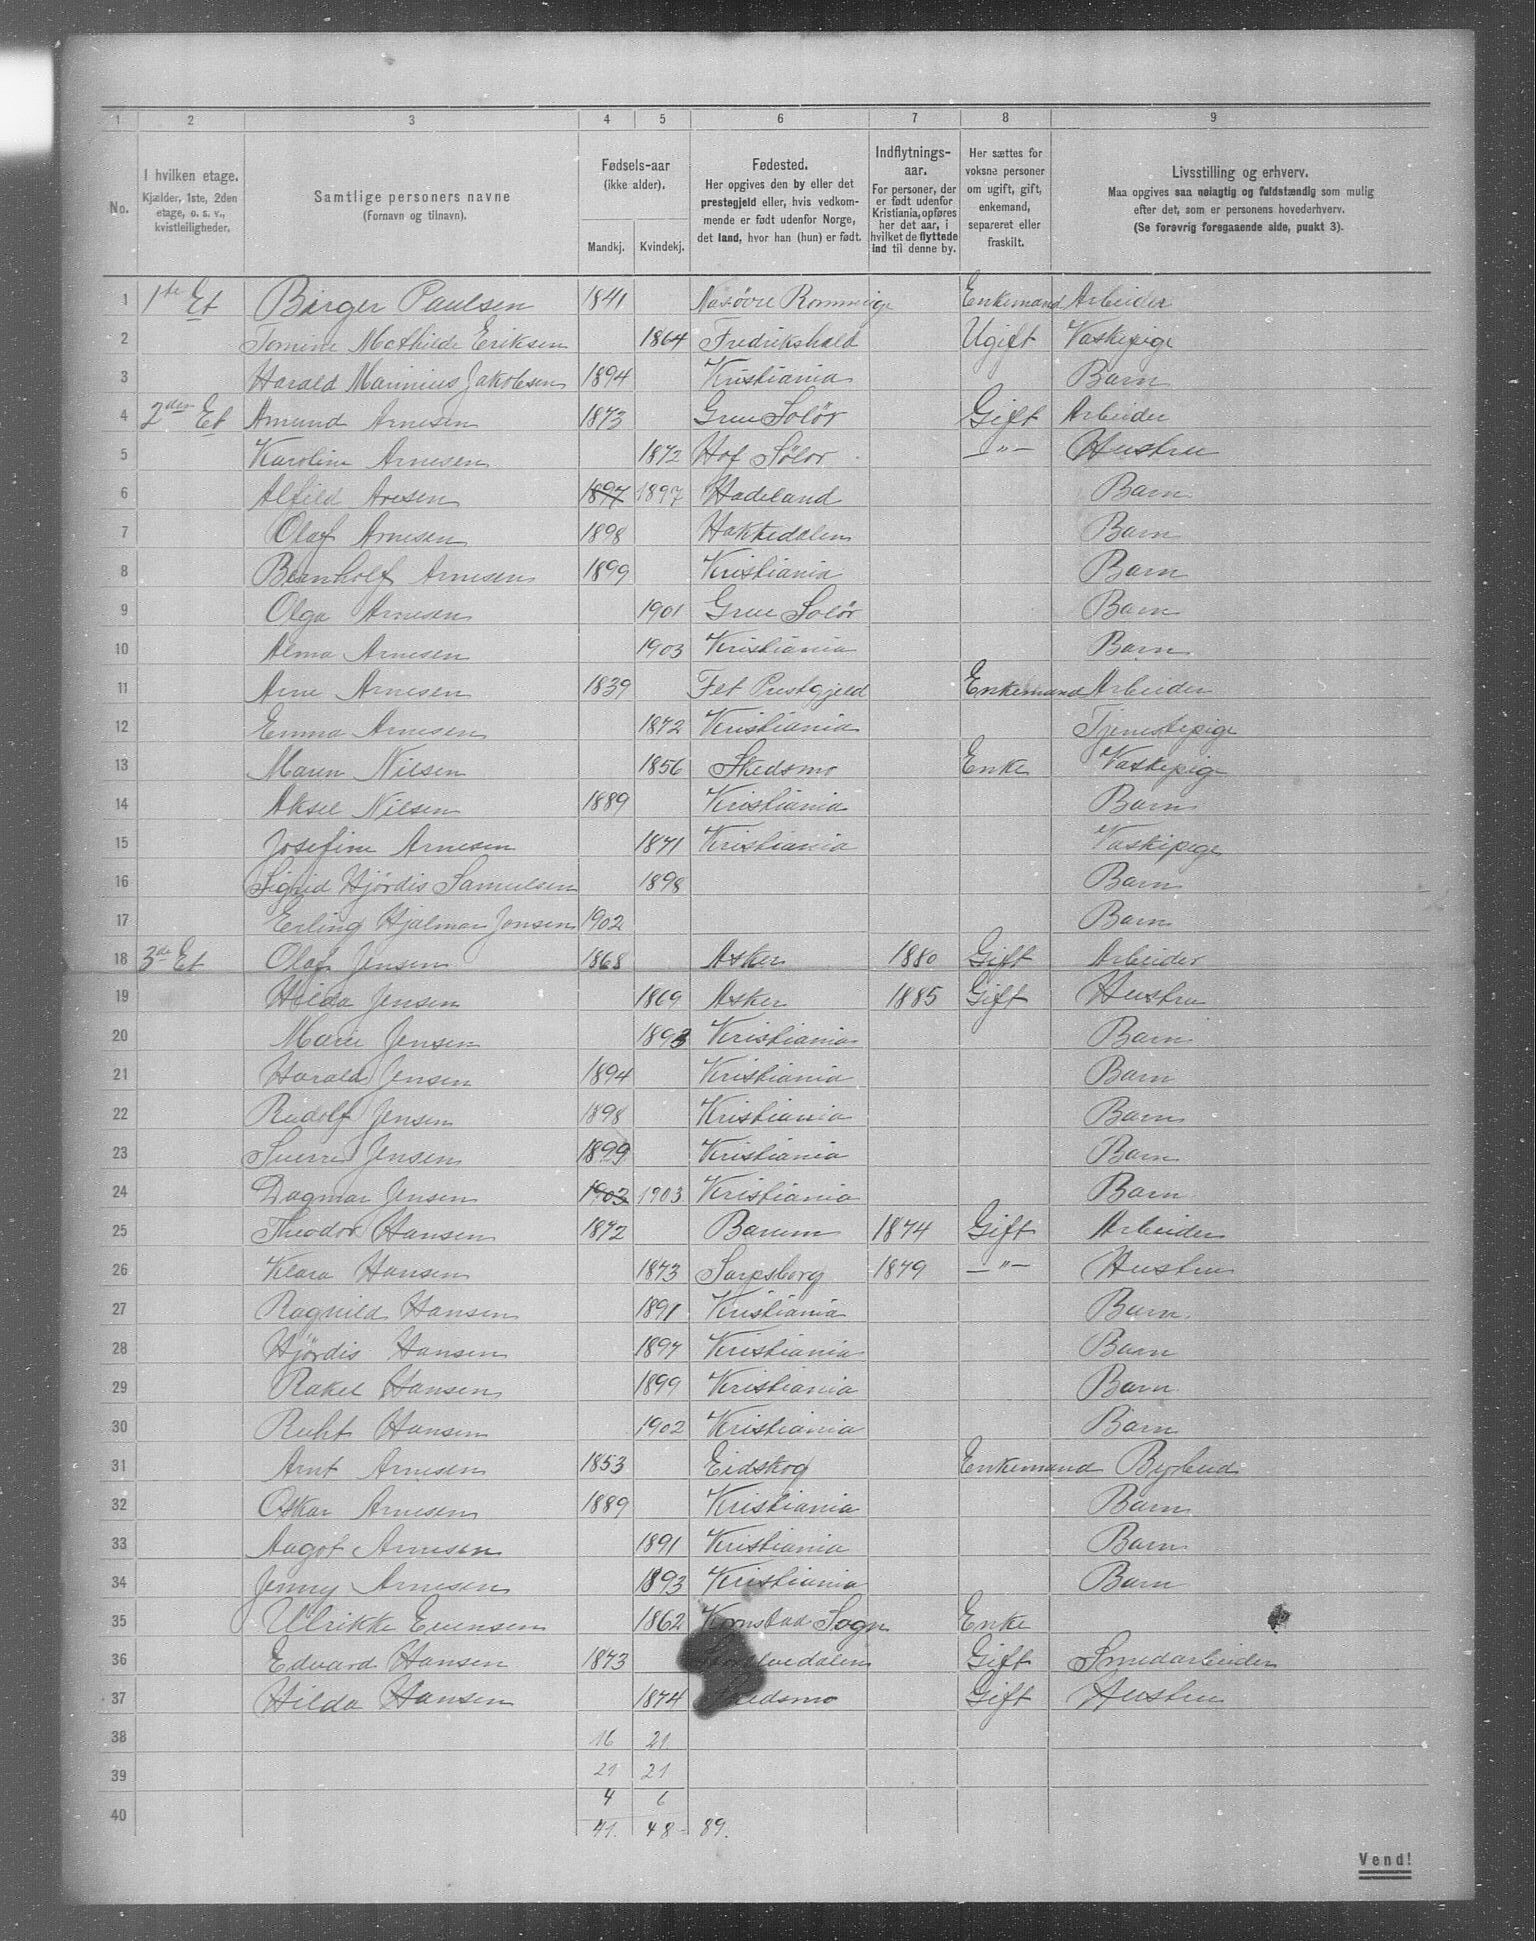 1 2 3 4 5 6 7 8 9
No.
I hvilken etage.
Kjælder, 1ste, 2den
etage, o. s. v.,
kvistleiligheder.
Samtlige personers navne
(Fornavn og tilnavn).
Fødsels-aar
(ikke alder).
Mandkj. Kvindekj.
Fødested.
Her opgives den by eller det
prestegjeld eller, hvis vedkom-
mende er født udenfor Norge,
det land, hvor han (hun) er født.
Indflytnings-
aar.
For personer, der
er født udenfor
Kristiania, opføres
her det aar, i
hvilket de flyttede
ind til denne by.
Her sættes for
voksne personer
om ugift, gift,
enkemand, enke,
separeret eller
fraskilt.
Livsstilling og erhverv.
Maa opgives saa nøiagtig og fuldstændig som mulig
efter det, som er personens hovederhverv.
(Se forøvrig foregaaende side, punkt 3).
1 1te Et Birger Paulsen 1841 Enkemand Arbeider
2 Tomine Mathilde Eriksen 1864 Fredrikshald Ugift Vaskepige
3 Harald Marinius Jakobsen 1894 Kristiania Barn
4 2den Et Amund Arnesen 1873 Grue Solör Gift Arbeider
5 Karoline Arnesen 1872 Hof Sölor —"— Hustru
6 Alfild Aresen 1897 1897 Hadeland Barn
7 Olaf Arnesen 1898 Hakkedalen Barn
8 Bernholf Arnesen 1899 Kristiania Barn
9 Olga Arnesen 1901 Grue Solör Barn
10 Alma Arnesen 1903 Kristiania Barn
11 Arne Arnesen 1839 Fet Prestgjeld Enkemand Arbeider
12 Emma Arnesen 1872 Kristiania Tjenestepige
13 Maren Nilsen 1856 Skedsmo Enke Vaskepige
14 Aksel Nilsen 1889 Kristiania Barn
15 Josefine Arnesen 1871 Kristiania Vaskepige
16 Sigrid Hjördis Samuelsen 1898 Barn
17 Erling Hjalmar Jonsen 1902 Barn
18 3de Et Olaf Jensen 1868 Asker 1880 Gift Arbeider
19 Hilda Jensen 1869 Asker 1885 Gift Hustru
20 Marie Jensen 1893 Kristiania Barn
21 Harald Jensen 1894 Kristiania Barn
22 Rudolf Jensen 1898 Kristiania Barn
23 Sverre Jensen 1899 Kristiania Barn
24 Dagmar Jensen 1903 1903 Kristiania Barn
25 Theodor Hansen 1872 Barum 1874 Gift Arbeider
26 Klara Hansen 1873 Sarpsborg 1879 —"— Hustru
27 Ragnild Hansen 1891 Kristiania Barn.
28 Hjördis Hansen 1897 Kristiania Barn
29 Rakel Hansen 1899 Kristiania Barn
30 Ruht Hansen 1902 Kristiania Barn
31 Arnt Arnesen 1853 Eidskog Enkemand Bybud
32 Oskar Arnesen 1889 Kristiania Barn
33 Aagot Arnesen 1891 Kristiania Barn
34 Jenny Arnesen 1893 Kristiania Barn
35 Ulrikke Evensen 1862 Sogn Enke
36 Edvard Hansen 1873 Gift Smedarbeider
37 Hilda Hansen 1874 Skedsmo Gift Hustru
38 16 21
39 21 21
4 6
40 41. 48 - 89.
Vend!